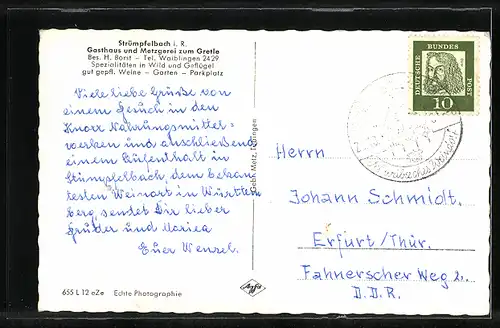 Strümpfelbach i. R.
Gasthaus und Metzgerei zum Gretle
Bes. H. Borst – Tel. Waiblingen 2429
Spezialitäten in Wild und Geflügel
gut gepfl. Weine – Garten – Parkplatz
Viele liebe Grüsse von
einem Besuch in den
Knorr Nahrungsmittel-
werken und anschließend
einem Aufenthalt in
Stümpfelbach, dem bekann
testen Weinort in Württem
berg, sendet Dir lieber
Bruder und Marica
Euer Wenzel.
655 L 12 aZe Echte Photographie
Gebr. Metz, Tübingen
Agfa
DEUTSCHE BUNDES POST
10
Herrn
Johann Schmidt,
Erfurt/Thür.
Fahnerscher Weg 2.
D.D.R.